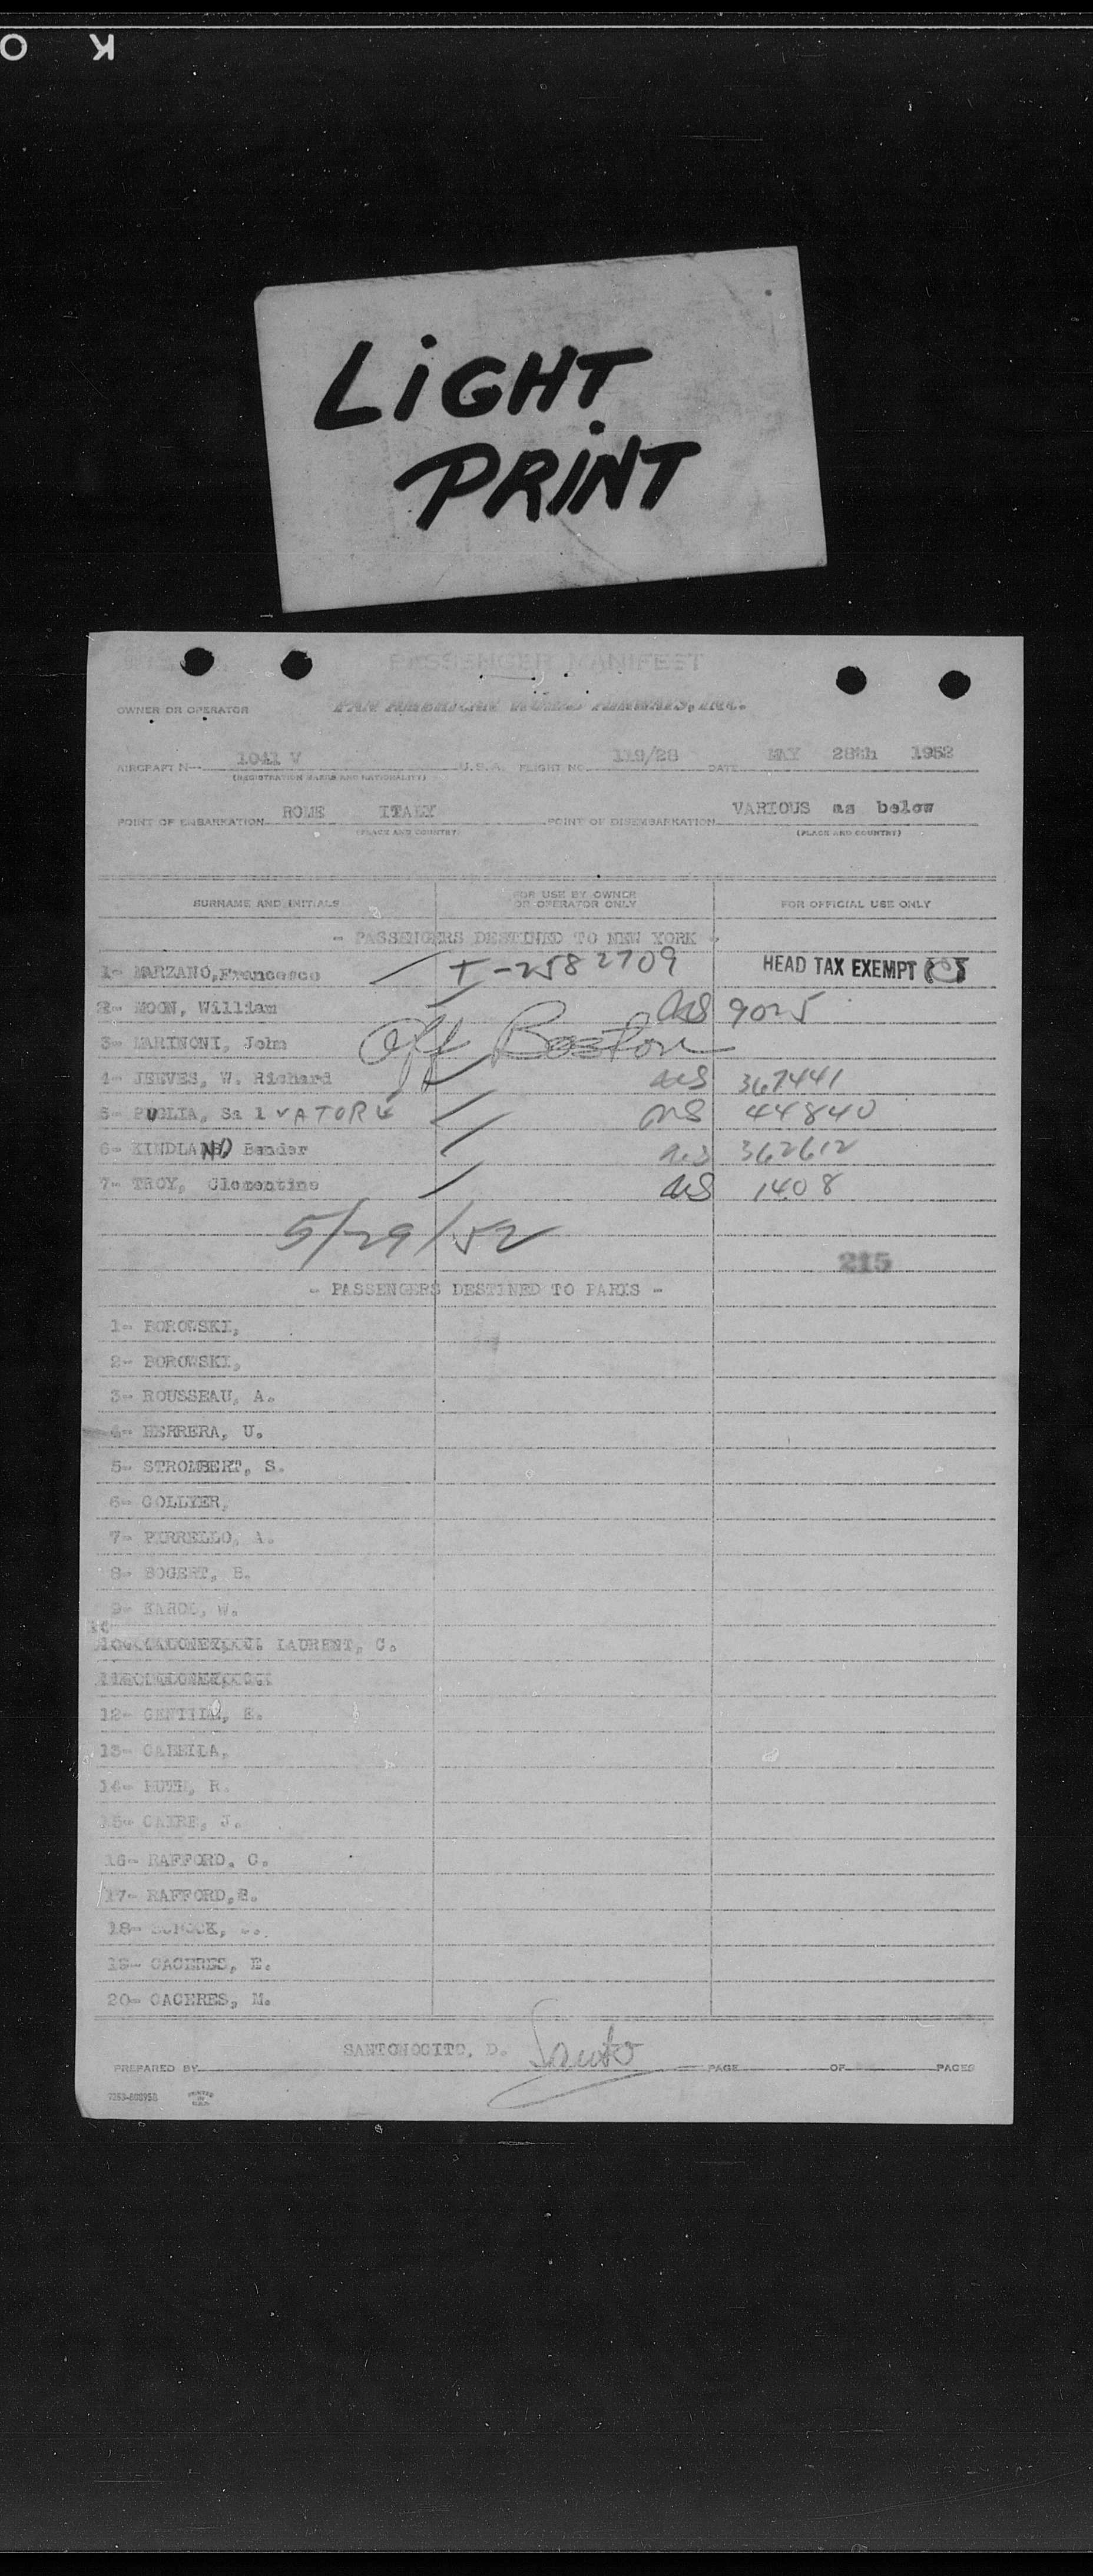 K O
LiGHT
PRiNT
PASSENGER MANIFEST
OWNER OR OPERATOR PAN AMERICAN WORLD AIRWAYS, INC.
AIRCRAFT N-- 1041 V U.S.A. FLIGHT NO. 119/28 DATE MAY 28th 1952
(REGISTRATION MARKS AND NATIONALITY)
POINT OF EMBARKATION ROME ITALY POINT OF DISEMBARKATION VARIOUS as below
(PLACE AND COUNTRY) (PLACE AND COUNTRY)
SURNAME AND INITIALS FOR USE BY OWNER OR OPERATOR ONLY FOR OFFICIAL USE ONLY
- PASSENGERS DESTINED TO NEW YORK -
1- MARZANO, Francesco I-2582709 HEAD TAX EXEMPT
2- MOON, William US 9025
3- MARINONI, John Off Boston
4- JEEVES, W. Richard US 367441
5- PUGLIA, Sa l vATORE US 44840
6- KINDLAND Bender US 362612
7- TROY, Clementine US 1408
5/29/52
215
- PASSENGERS DESTINED TO PARIS -
1- BOROWSKI,
2- BOROWSKI,
3- ROUSSEAU, A.
4- HERRERA, U.
5- STROMBERT, S.
6- COLLYER,
7- PERRELLO, A.
8- BOGERT, B.
9- KAROL, W.
LAURENT, C.
12- GENTILE, E.
13-
14- RUTH, R.
15- J.
16- RAFFORD. C.
17- RAFFORD, E.
18-
19- CACERES, E.
20- CACERES, M.
PREPARED BY SANTONOCITO, D. Santo PAGE OF PAGES
PRINTED IN U.S.A.